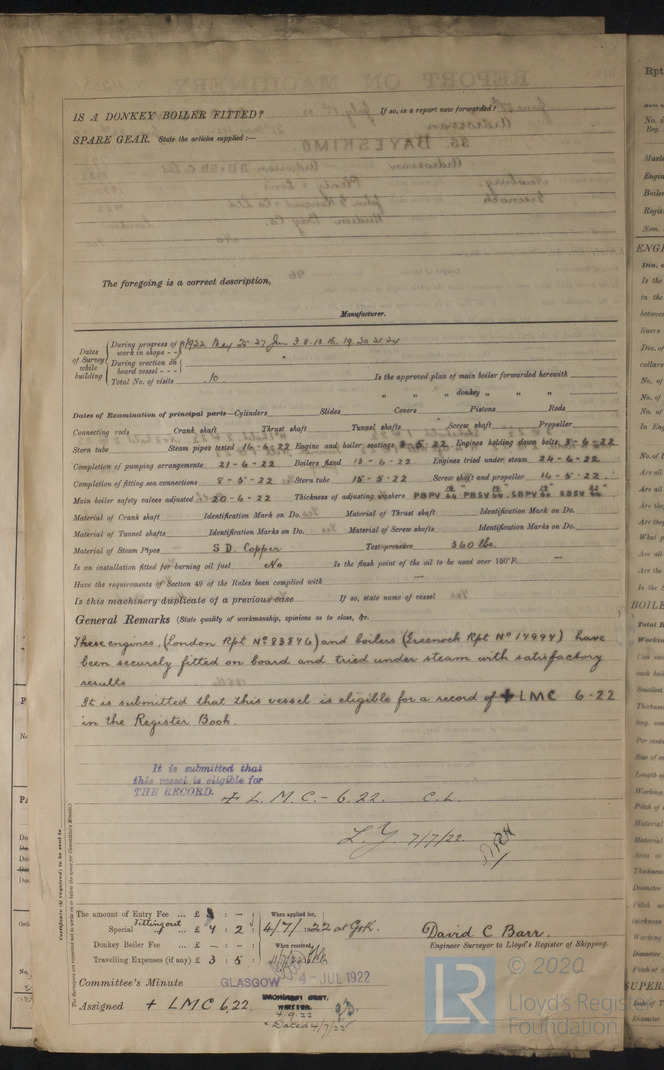 IS A DONKEY BOILER FITTED? If so, is a report now forwarded?
SPARE GEAR. State the articles supplied:—
The foregoing is a correct description,
Manufacturer.
Dates of Survey while building
During progress of work in shops - - 1922 May 25. 27 Jun 3. 8. 13. 16. 19. 20. 21. 24
During erection on board vessel - - -
Total No. of visits 10 Is the approved plan of main boiler forwarded herewith
" " " donkey " " "
Dates of Examination of principal parts—Cylinders Slides Covers Pistons Rods
Connecting rods Crank shaft Thrust shaft Tunnel shafts Screw shaft Propeller
Stern tube Steam pipes tested 16-6-22 Engine and boiler seatings 8-5-22 Engines holding down bolts 8-6-22
Completion of pumping arrangements 21-6-22 Boilers fixed 13-6-22 Engines tried under steam 24-6-22
Completion of fitting sea connections 8-5-22 Stern tube 15-5-22 Screw shaft and propeller 16-5-22
Main boiler safety valves adjusted 20-6-22 Thickness of adjusting washers PBPV PBSV SBPV SBSV
Material of Crank shaft Identification Mark on Do. Material of Thrust shaft Identification Mark on Do.
Material of Tunnel shafts Identification Marks on Do. Material of Screw shafts Identification Marks on Do.
Material of Steam Pipes S.D. Copper Test pressure 360 lbs.
Is an installation fitted for burning oil fuel No Is the flash point of the oil to be used over 150°F. —
Have the requirements of Section 49 of the Rules been complied with —
Is this machinery duplicate of a previous case If so, state name of vessel
General Remarks (State quality of workmanship, opinions as to class, &c.
These engines, (London Rpt No 83846) and boilers (Greenock Rpt No 14994) have
been securely fitted on board and tried under steam with satisfactory
results
It is submitted that this vessel is eligible for a record of + LMC 6-22
in the Register Book.
It is submitted that
this vessel is eligible for
THE RECORD. + L. M. C. - 6.22. C.L.
L.Y. 7/7/22.
The amount of Entry Fee ... £ : - : When applied for,
Fitting out
Special ... £ 4 : 2 : 4/7/1922 at Grk.
Donkey Boiler Fee ... £ - : - : When received,
Travelling Expenses (if any) £ 3 : 5 :
David C Barr.
Engineer Surveyor to Lloyd's Register of Shipping.
Committee's Minute GLASGOW 4 - JUL 1922
Assigned + LMC 6.22.
MACHINERY CERT.
WRITTEN
Dated 4/7/22
Certificate (if required) to be sent to
© 2020
LR
Lloyd's Register
Foundation